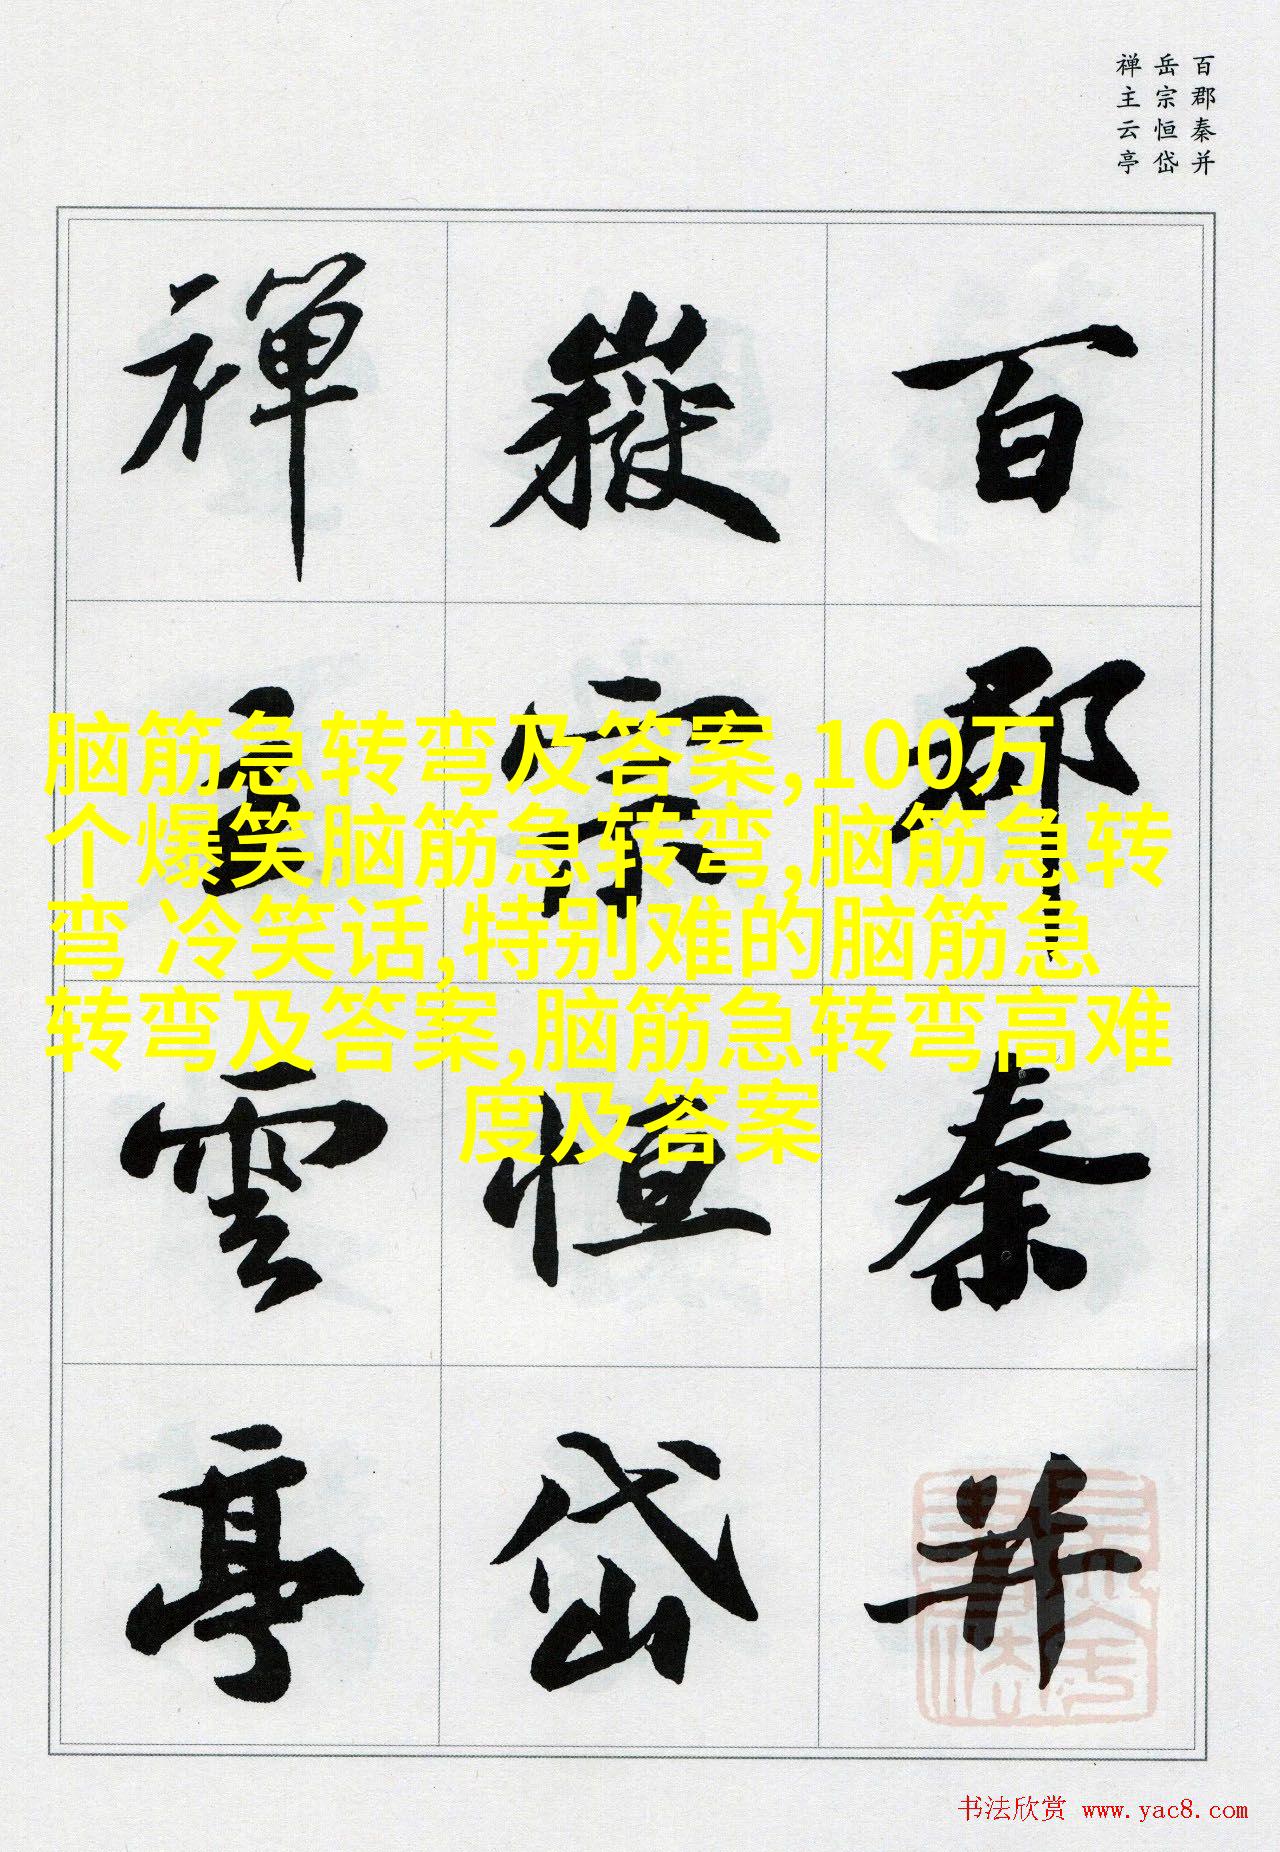 百郡秦并
岳宗恒岱
禅主云亭
百郡秦并
嶽宗恒岱
禪主雲亭
脑筋急转弯及答案,100万
个爆笑脑筋急转弯,脑筋急转
弯 冷笑话,特别难的脑筋急
转弯及答案,脑筋急转弯高难
度及答案
书法欣赏 www.yac8.com